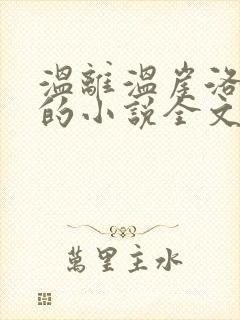 溫離溫崖洛
的小說全文
萬里主水